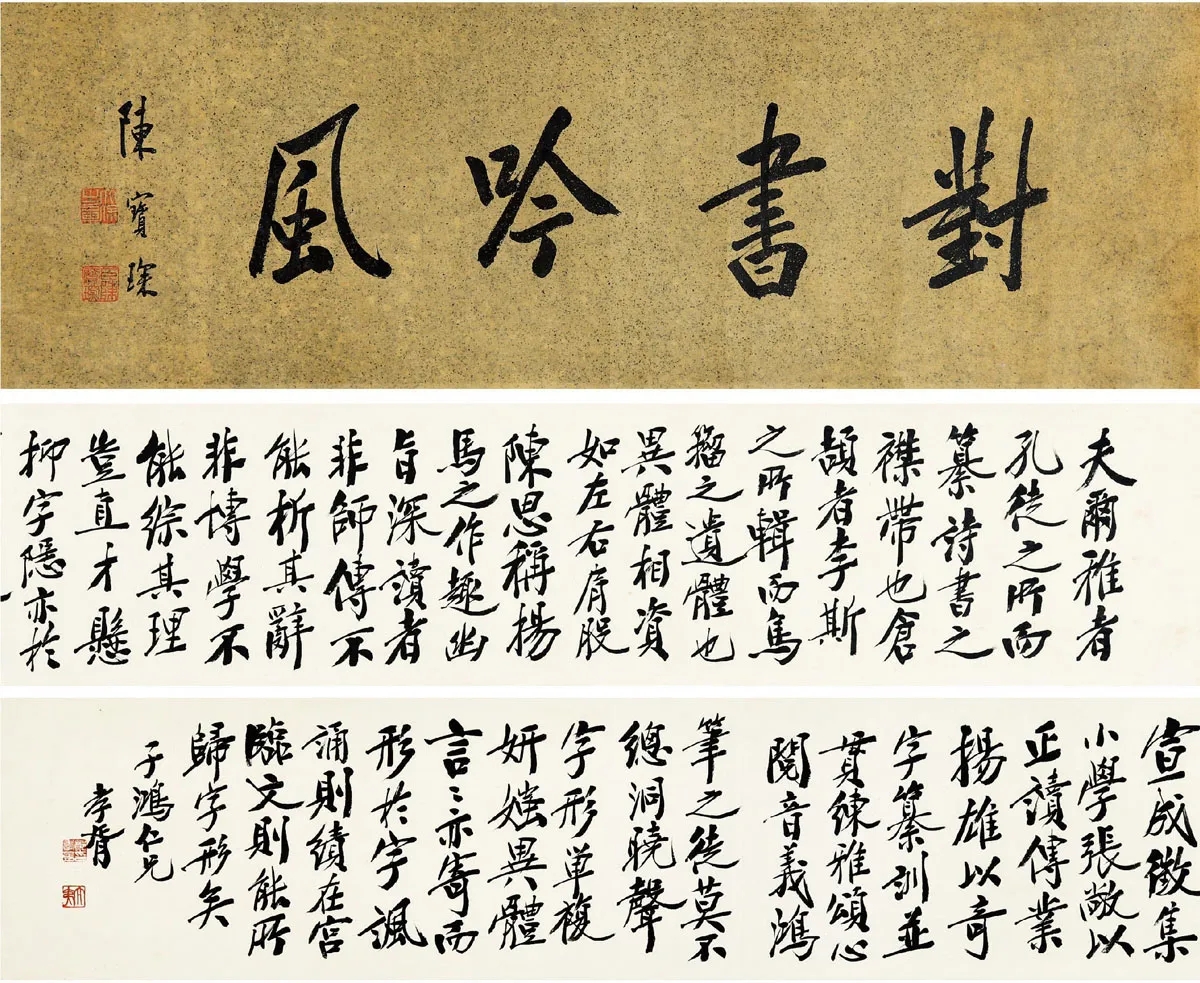 對書吟風
陳寶琛
夫爾雅者
孔徒之所而
纂詩書之
襟帶也倉
頡者李斯
之所輯而鳥
籀之遺體也
異體相資
如左右肩股
陳思稱揚
馬之作趣幽
旨深讀者
非師傳不
能析其辭
非博學不
能綜其理
豈直才懸
抑字隱亦於
宣成徵集
小學張敞以
正讀傳業
揚雄以奇
字纂訓並
貫練雅頌心
閱音義鴻
筆之徒莫不
總洞曉聲
字形單複
妍媸異體
言〻亦寄而
形於字諷
誦則績在宮
臨文則能所
歸字形矣
子鴻仁兄
孝胥